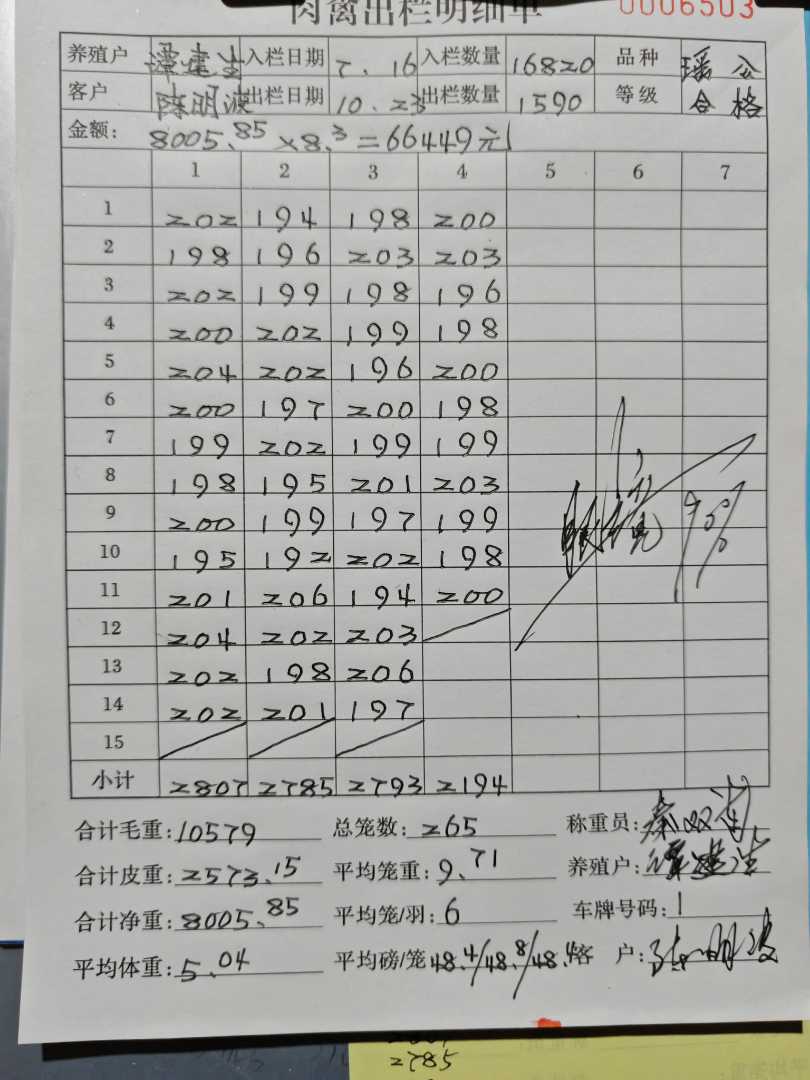 肉禽出栏明细单 0006503
养殖户 谭建生 入栏日期 7.16 入栏数量 16820 品种 瑶公
客户 陈明波 出栏日期 10.23 出栏数量 1590 等级 合格
金额: 8005.85×8.3=66449元
1 2 3 4 5 6 7
1 202 194 198 200
2 198 196 203 203
3 202 199 198 196
4 200 202 199 198
5 204 202 196 200
6 200 197 200 198
7 199 202 199 199
8 198 195 201 203
9 200 199 197 199
10 195 192 202 198
11 201 206 194 200
12 204 202 203
13 202 198 206
14 202 201 197
15
小计 2807 2785 2793 2194
合计毛重:10579 总笼数:265 称重员:
合计皮重:2573.15 平均笼重:9.71 养殖户:谭建生
合计净重:8005.85 平均笼/羽:6 车牌号码:1
平均体重:5.04 平均磅/笼48.4/48.8/48.4 客户:陈明波
2785